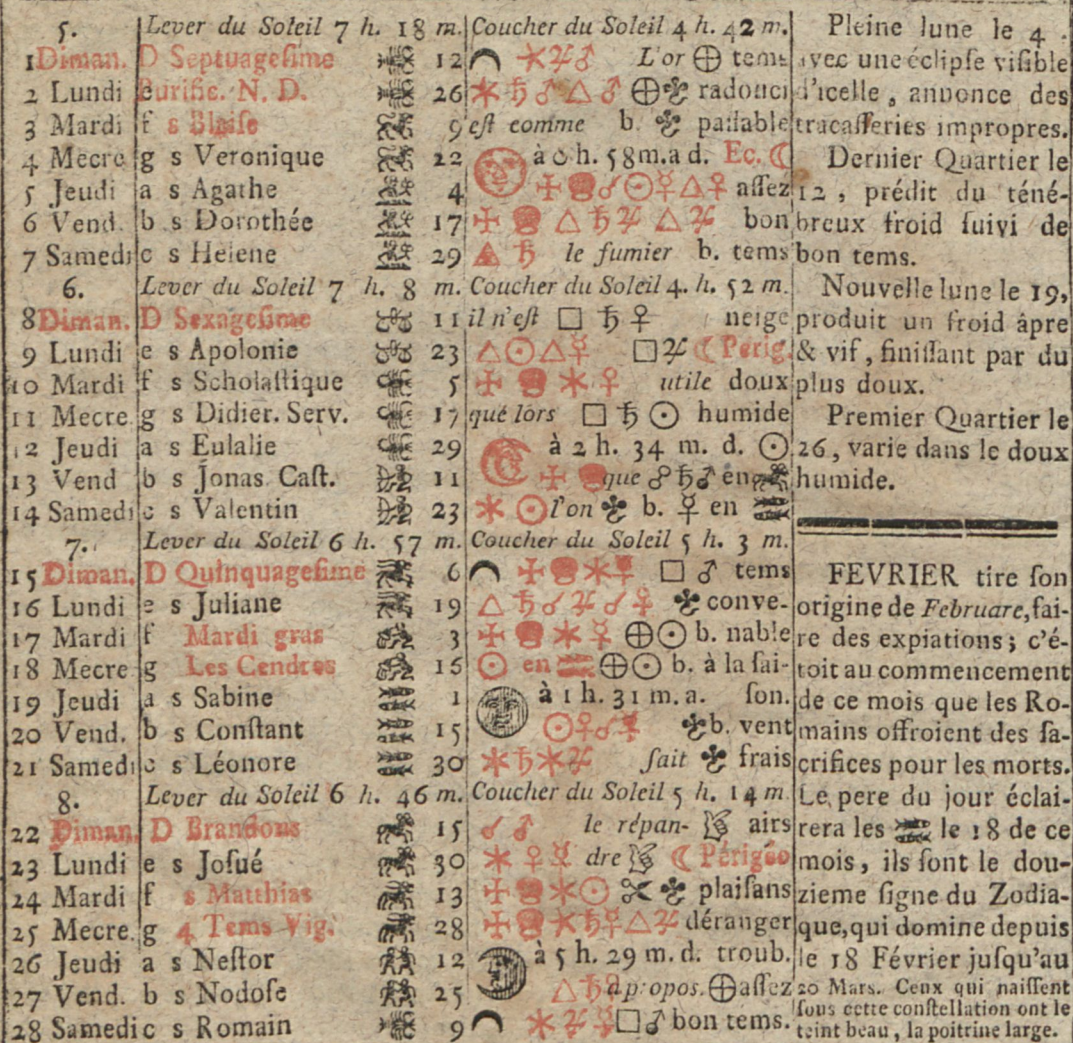 5. Lever du Soleil 7 h. 18 m. Coucher du Soleil 4 h. 42 m.
1 Diman. D Septuagesime 12 ☽ ✶♃♂ L'or ⊕ tems
2 Lundi e Purific. N. D. 26 ✶♄♂△♂ ⊕ radouci
3 Mardi f s Blaise 9 est comme b. passable
4 Mecre g s Veronique 22 à 0 h. 58 m. a d. Ec. ☾
5 Jeudi a s Agathe 4 ☌☉☿△♀ assez
6 Vend. b s Dorothée 17 △♄♃ △♃ bon
7 Samedi c s Helene 29 △♄ le fumier b. tems
6. Lever du Soleil 7 h. 8 m. Coucher du Soleil 4. h. 52 m.
8 Diman. D Sexagesime 11 il n'est □ ♄ ♀ neige
9 Lundi e s Apolonie 23 △☉△☿ □♃ ☾ Perig.
10 Mardi f s Scholastique 5 ✶ ♀ utile doux
11 Mecre g s Didier. Serv. 17 que lors □ ♄ ☉ humide
12 Jeudi a s Eulalie 29 à 2 h. 34 m. d. ☉
13 Vend b s Jonas Cast. 11 que ☍♄♂ en
14 Samedi c s Valentin 23 ✶ ☉ l'on b. ☿ en
7. Lever du Soleil 6 h. 57 m. Coucher du Soleil 5 h. 3 m.
15 Diman. D Quinquagesime 6 □ ♂ tems
16 Lundi e s Juliane 19 △ ♄☌♃☌♀ conve-
17 Mardi f Mardi gras 3 ✶ ☿ ⊕☉ b. nable
18 Mecre g Les Cendres 16 ☉ en ⊕☉ b. à la sai-
19 Jeudi a s Sabine 1 à 1 h. 31 m. a. son.
20 Vend. b s Constant 15 ☉♀☌☿ b. vent
21 Samedi c s Léonore 30 ✶♄✶♃ fait frais
8. Lever du Soleil 6 h. 46 m. Coucher du Soleil 5 h. 14 m
22 Diman. D Brandons 15 ☌♂ le répan- airs
23 Lundi e s Josué 30 ✶ ♀ ☿ dre ☾ Périgéo
24 Mardi f s Matthias 13 ✶☉ plaisans
25 Mecre. g 4 Tems Vig. 28 ✶♄☿△♃ déranger
26 Jeudi a s Nestor 12 à 5 h. 29 m. d. troub.
27 Vend. b s Nodose 25 △♄ apropos. ⊕ assez
28 Samedi c s Romain 9 ✶♃☿□♂ bon tems.
Pleine lune le 4
avec une éclipse visible
d'icelle, annonce des
tracasseries impropres.
Dernier Quartier le
12, prédit du téné-
breux froid suivi de
bon tems.
Nouvelle lune le 19,
produit un froid âpre
& vif, finissant par du
plus doux.
Premier Quartier le
26, varie dans le doux
humide.
FEVRIER tire son
origine de Februare, fai-
re des expiations; c'é-
toit au commencement
de ce mois que les Ro-
mains offroient des sa-
crifices pour les morts.
Le pere du jour éclai-
rera les ♓ le 18 de ce
mois, ils sont le dou-
zieme signe du Zodia-
que, qui domine depuis
le 18 Février jusqu'au
20 Mars. Ceux qui naissent
sous cette constellation ont le
teint beau, la poitrine large.